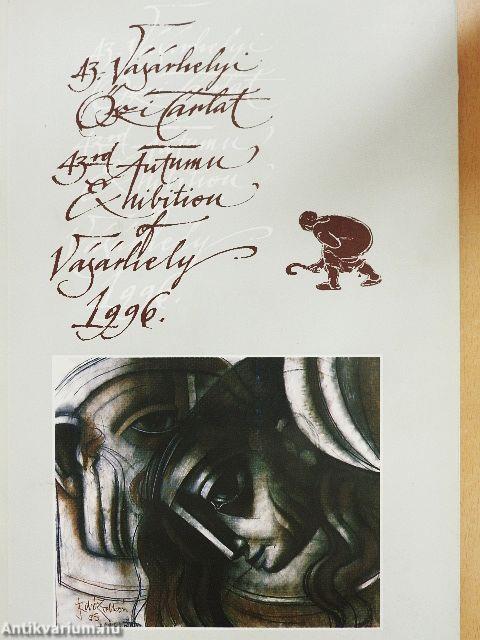 43. Vásárhelyi
Őszi Tárlat
43rd Autumn
Exhibition
of
Vásárhely
1996.
95
Antikvarium.hu